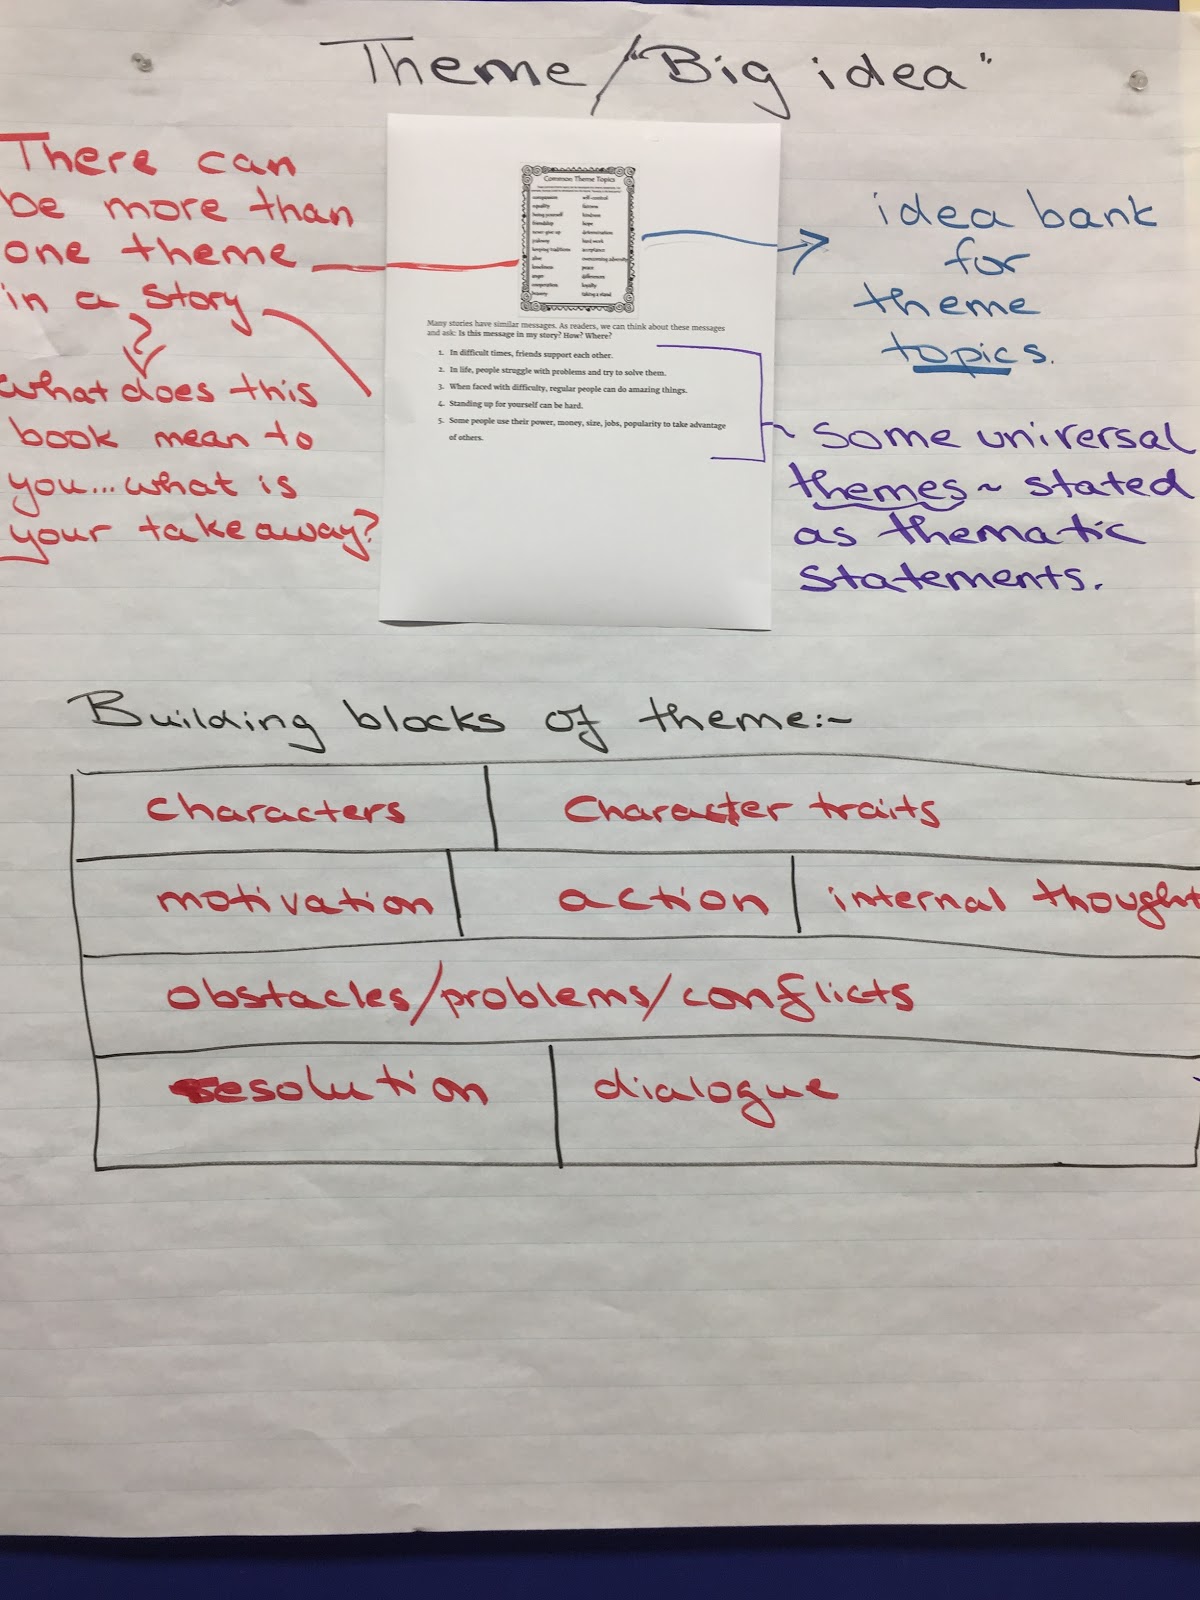 Theme/"Big idea"
There can
be more than
one theme
in a story
What does this
book mean to
you...what is
your take away?
Common Theme Topics
compassion
equality
being yourself
friendship
never give up
jealousy
keeping traditions
loneliness
anger
cooperation
bravery
self-control
fairness
kindness
hope
determination
hard work
acceptance
overcoming adversity
peace
differences
loyalty
taking a stand
Many stories have similar messages. As readers, we can think about these messages
and ask: Is this message in my story? How? Where?
1. In difficult times, friends support each other.
2. In life, people struggle with problems and try to solve them.
3. When faced with difficulty, regular people can do amazing things.
4. Standing up for yourself can be hard.
5. Some people use their power, money, size, jobs, popularity to take advantage
of others.
idea bank
for
theme
topics.
~ some universal
themes ~ stated
as thematic
statements.
Building blocks of theme:~
characters
Character traits
motivation
action
internal thought
obstacles/problems/conflicts
resolution
dialogue